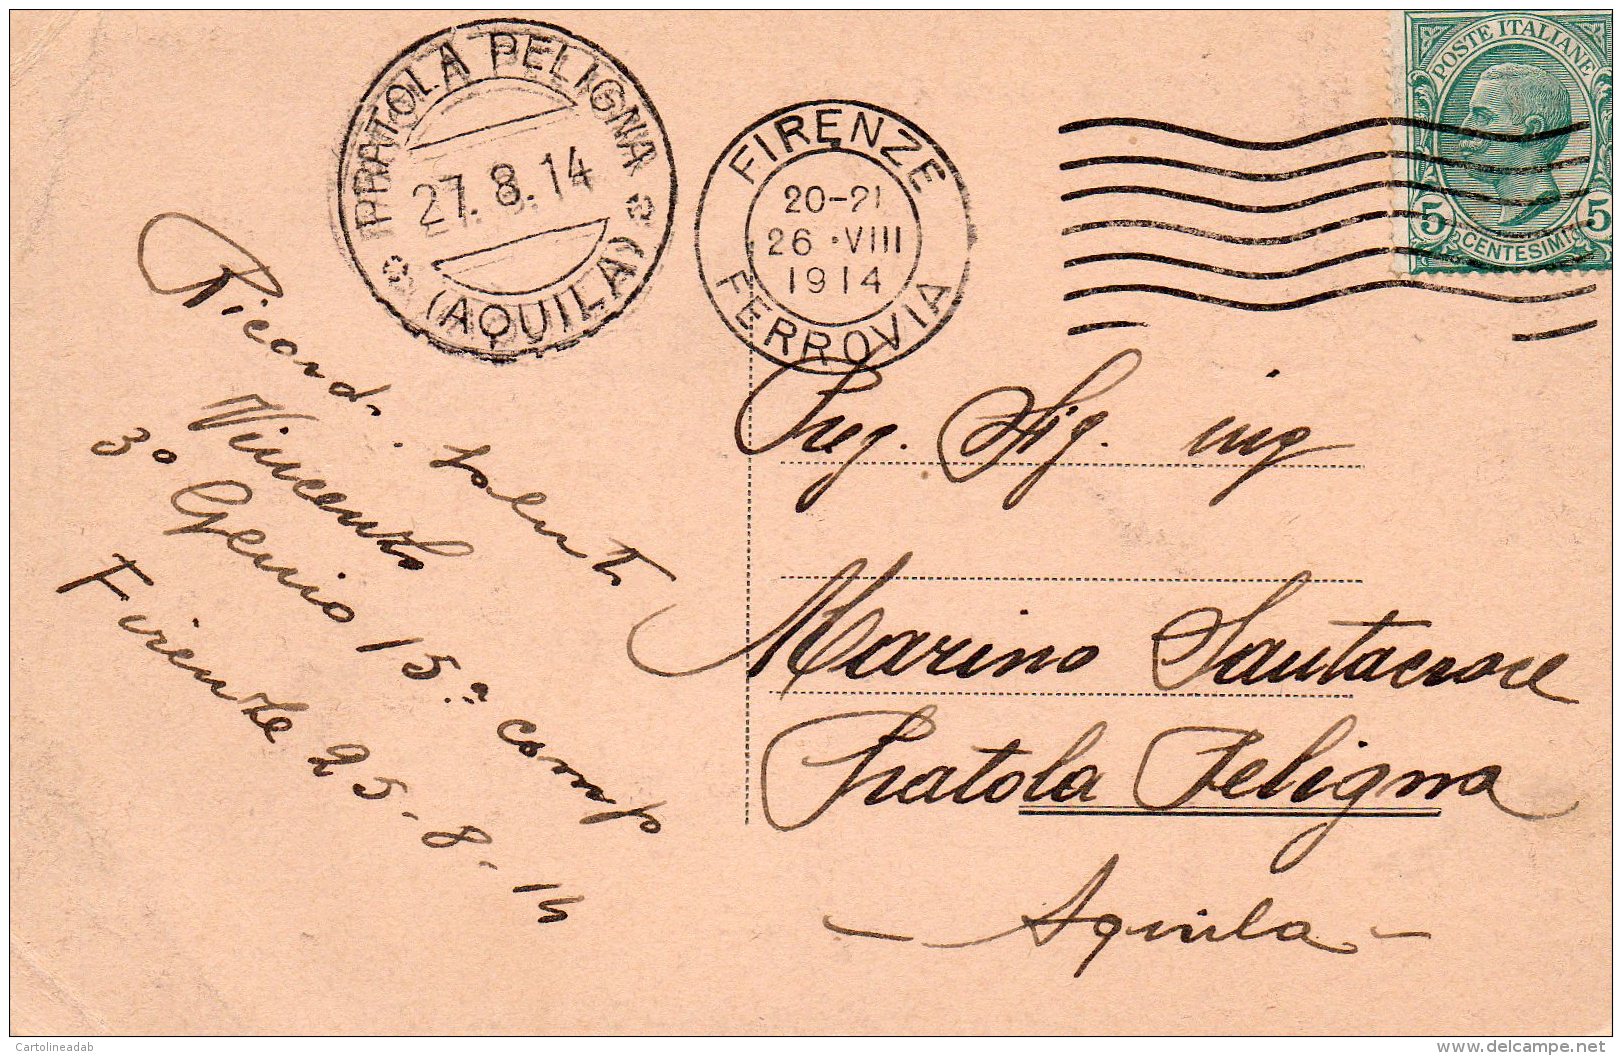 PRATOLA PELIGNA
27.8.14
(AQUILA)
FIRENZE
20-21
26·VIII
1914
FERROVIA
POSTE ITALIANE
5 CENTESIMI 5
Ricordi. saluti
Vincenzo
3º Genio 15.ª comp
Firenze 25-8-14
Preg. Sig. ing
Marino Santacroce
Pratola Peligna
- Aquila -
Cartolineadab
www.delcampe.net